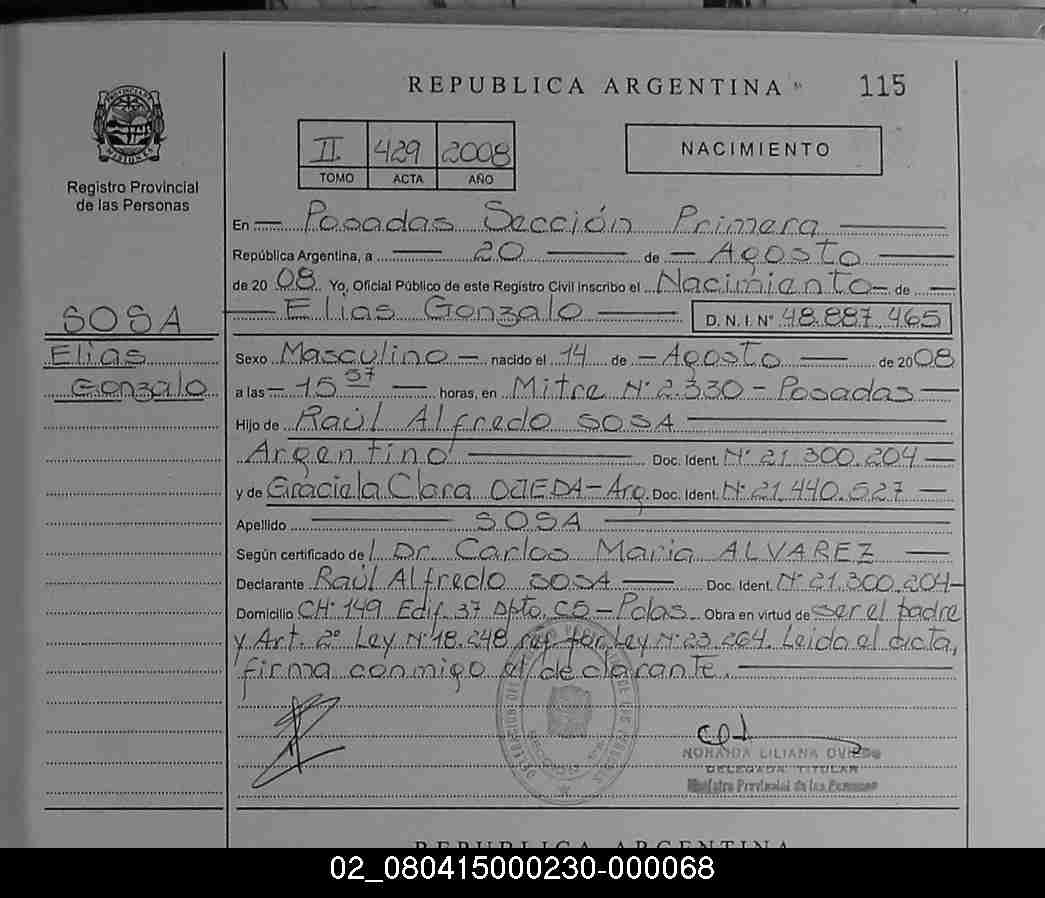 REPUBLICA ARGENTINA
115
PROVINCIA DE MISIONES
Registro Provincial
de las Personas
II 429 2008
TOMO ACTA AÑO
NACIMIENTO
En Posadas Sección Primera
República Argentina, a 20 de Agosto
de 2008. Yo, Oficial Público de este Registro Civil inscribo el Nacimiento de
Elias Gonzalo D.N.I. Nº 48.887.465
SOSA
Elias
Gonzalo
Sexo Masculino nacido el 14 de Agosto de 2008
a las 15 57 horas, en Mitre Nº 2.330 - Posadas
Hijo de Raúl Alfredo SOSA
Argentino Doc. Ident. Nº 21.300.204
y de Graciela Clara OJEDA - Arg. Doc. Ident. Nº 21.440.527
Apellido SOSA
Según certificado de l Dr. Carlos Maria ALVAREZ
Declarante Raúl Alfredo SOSA Doc. Ident. Nº 21.300.204
Domicilio CH. 149 Edif. 37 Dpto. C5 - Pdas. Obra en virtud de ser el padre
y Art. 2º Ley Nº 18.248 ref. por Ley Nº 23.264. Leido el acta,
firma conmigo el declarante.
NORAIDA LILIANA OVIEDO
DELEGADA TITULAR
Registro Provincial de las Personas
REPUBLICA ARGENTINA
02_080415000230-000068